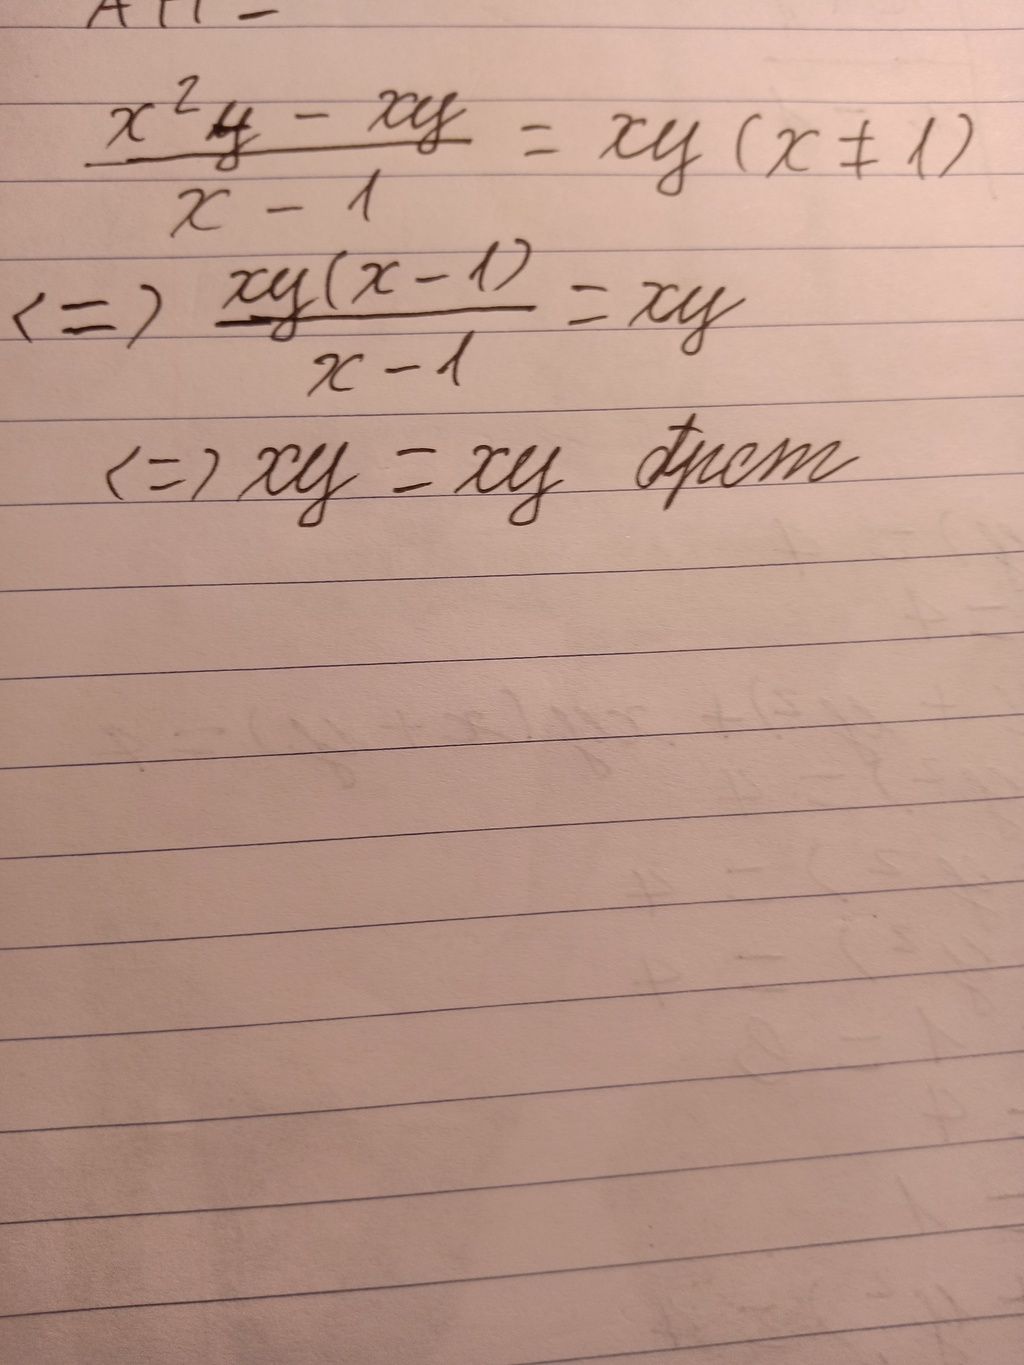 x²y - xy / x - 1 = xy (x ≠ 1)
<=> xy(x - 1) / x - 1 = xy
<=> xy = xy đpcm